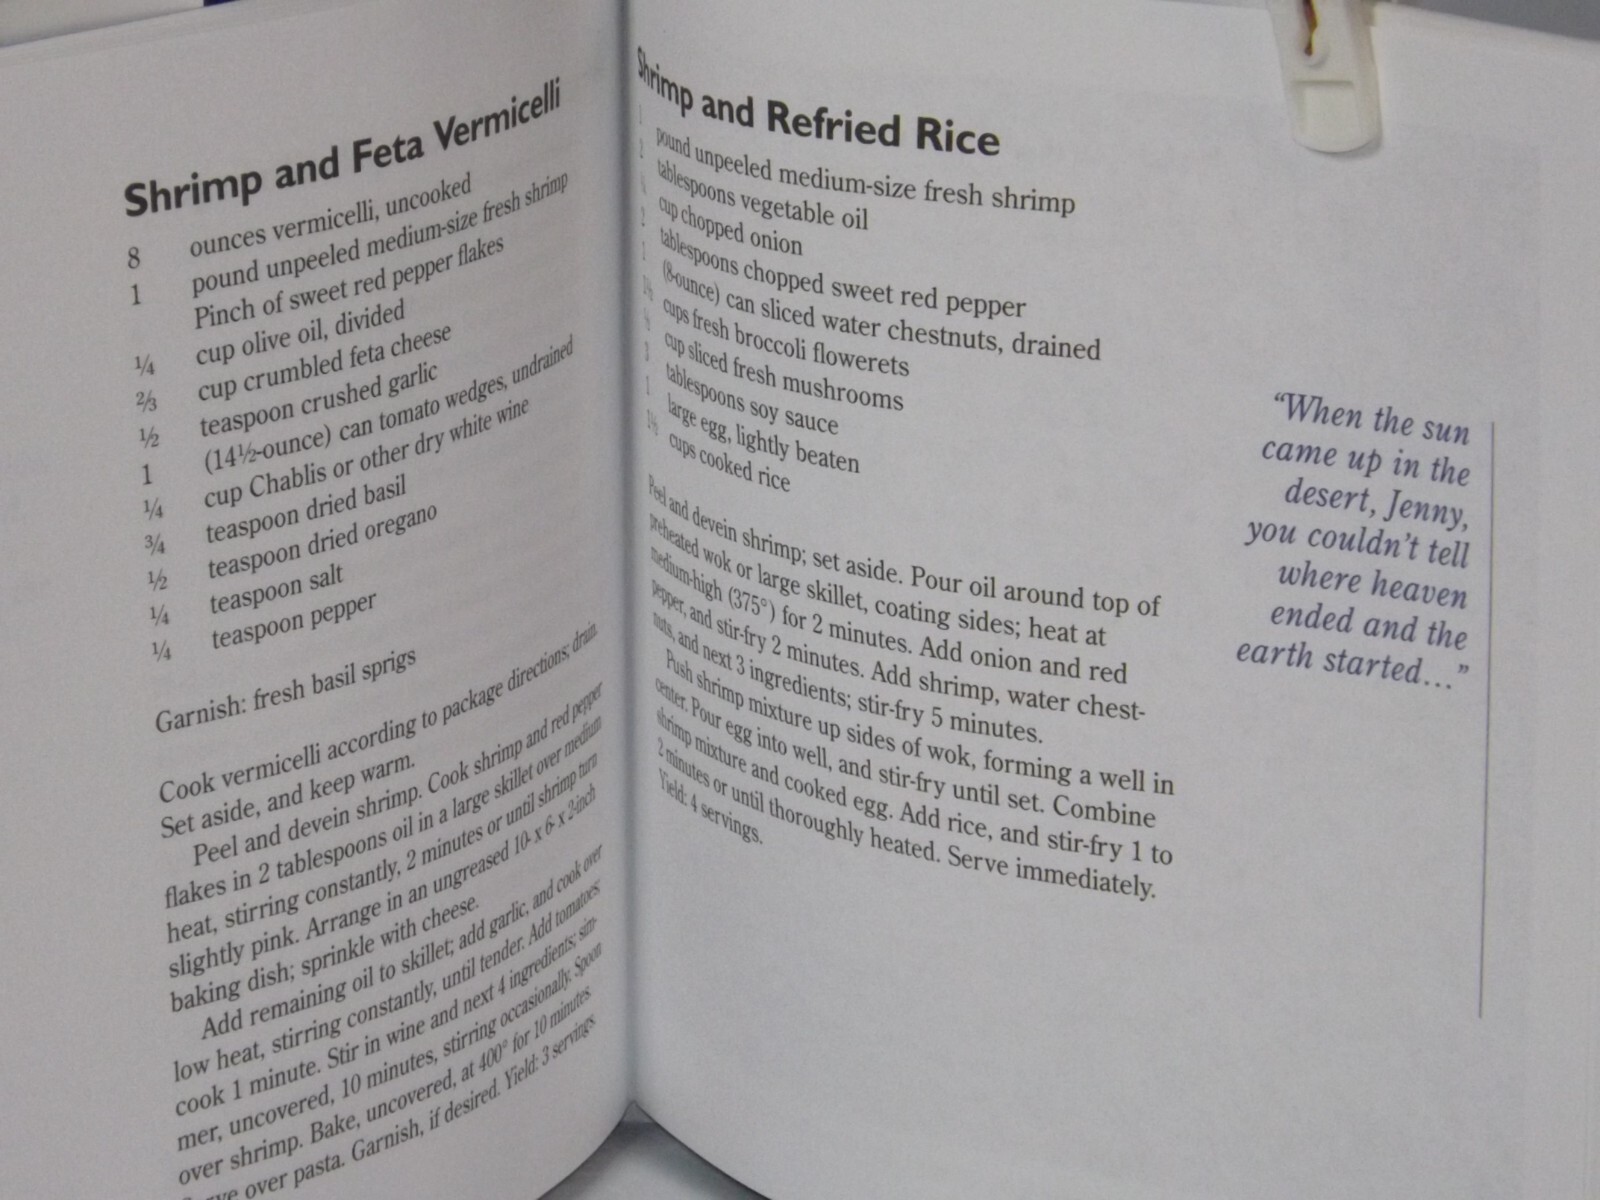 Shrimp and Feta Vermicelli
8 ounces vermicelli, uncooked
1 pound unpeeled medium-size fresh shrimp
Pinch of sweet red pepper flakes
¼ cup olive oil, divided
⅔ cup crumbled feta cheese
½ teaspoon crushed garlic
1 (14½-ounce) can tomato wedges, undrained
¼ cup Chablis or other dry white wine
¾ teaspoon dried basil
½ teaspoon dried oregano
¼ teaspoon salt
¼ teaspoon pepper
Garnish: fresh basil sprigs
Cook vermicelli according to package directions; drain.
Set aside, and keep warm.
Peel and devein shrimp. Cook shrimp and red pepper
flakes in 2 tablespoons oil in a large skillet over medium
heat, stirring constantly, 2 minutes or until shrimp turn
slightly pink. Arrange in an ungreased 10- x 6- x 2-inch
baking dish; sprinkle with cheese.
Add remaining oil to skillet; add garlic, and cook over
low heat, stirring constantly, until tender. Add tomatoes;
cook 1 minute. Stir in wine and next 4 ingredients; sim-
mer, uncovered, 10 minutes, stirring occasionally. Spoon
over shrimp. Bake, uncovered, at 400° for 10 minutes.
over pasta. Garnish, if desired. Yield: 3 servings.
Shrimp and Refried Rice
1 pound unpeeled medium-size fresh shrimp
2 tablespoons vegetable oil
cup chopped onion
2 tablespoons chopped sweet red pepper
1 (8-ounce) can sliced water chestnuts, drained
cups fresh broccoli flowerets
cup sliced fresh mushrooms
3 tablespoons soy sauce
1 large egg, lightly beaten
cups cooked rice
Peel and devein shrimp; set aside. Pour oil around top of
preheated wok or large skillet, coating sides; heat at
medium-high (375°) for 2 minutes. Add onion and red
pepper, and stir-fry 2 minutes. Add shrimp, water chest-
nuts, and next 3 ingredients; stir-fry 5 minutes.
Push shrimp mixture up sides of wok, forming a well in
center. Pour egg into well, and stir-fry until set. Combine
shrimp mixture and cooked egg. Add rice, and stir-fry 1 to
2 minutes or until thoroughly heated. Serve immediately.
Yield: 4 servings.
“When the sun
came up in the
desert, Jenny,
you couldn’t tell
where heaven
ended and the
earth started…”